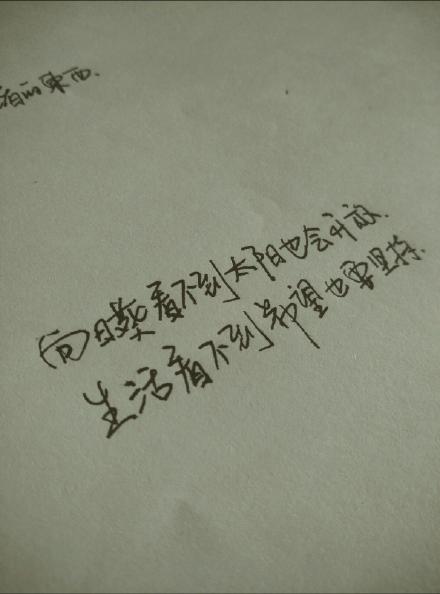 有的東西.
向日葵看不到太阳也会开放.
生活看不到希望也要坚持.